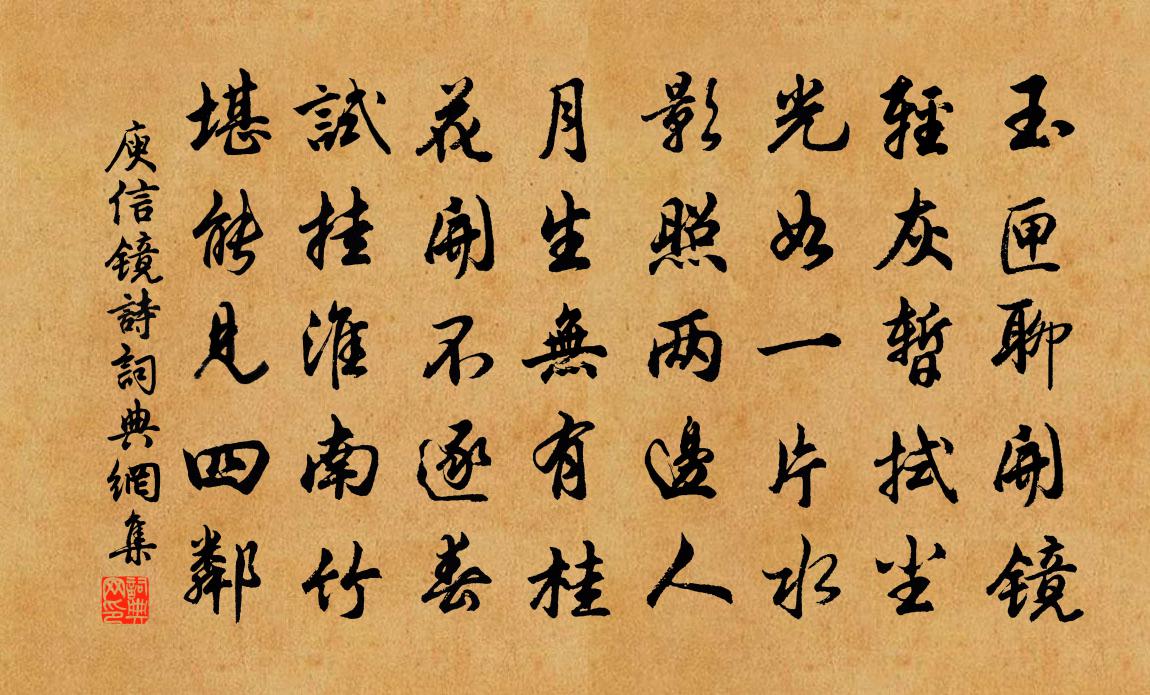 玉匣聊開镜
輕灰暫拭尘
光如一片水
影照两邊人
月生無有桂
花開不逐春
試挂淮南竹
堪能見四鄰
庾信镜詩詞典網集
詞典网印